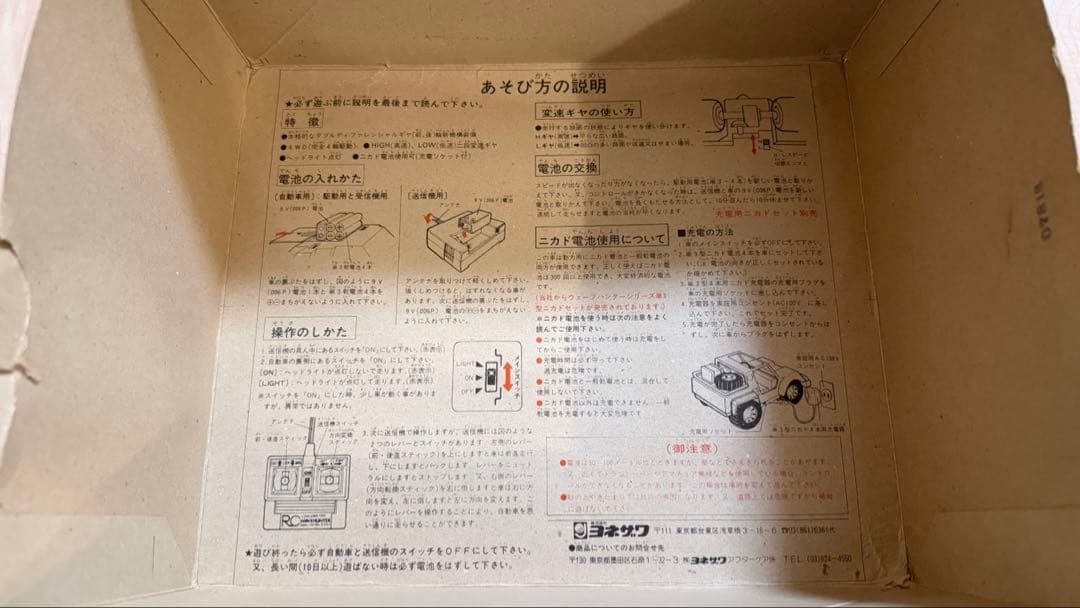 あそび方の説明
★必ず遊ぶ前に説明を最後まで読んで下さい。
特徴
●本格的なダブルディファレンシャルギヤ(前,後)輪駆動機構装備
●4WD(完全4輪駆動) ●HIGH(高速)、LOW(低速)二段変速ギヤ
●ヘッドライト点灯 ●ニカド電池使用可(充電ソケット付)
電池の入れかた
[自動車用]：駆動用と受信機用
9V(006P)電池
単3乾電池4本
車の裏ぶたをはずし、図のように9V
(006P)電池1本と単3乾電池4本を
⊕⊖まちがえないように入れて下さい。
[送信機用]
アンテナ
9V(006P)電池
アンテナを取りつけて軽くしめて下さい。
強くしめつけると、はずれなくなる事が
あります。次に送信機の裏ぶたをはずし、
9V(006P)電池の⊕⊖をまちがえない
ように入れて下さい。
操作のしかた
1.送信機の真ん中にあるスイッチを「ON」にして下さい。(赤表示)
2.自動車の裏側にあるスイッチを「ON」にして下さい。
[ON]：ヘッドライトが点灯しないで走ります。(赤表示)
[LIGHT]：ヘッドライトが点灯して走ります。(赤表示)
※スイッチを「ON」にした時、少し車が動く事がありま
すが、異常ではありません。
LIGHT
ON
OFF
メインスイッチ
アンテナ
送信機スイッチ
前・後進スティック
方向変換
スティック
RC WAVE HUNTER
3.次に送信機で操作しますが、送信機には図のような
2つのレバーとスイッチがあります。左側のレバー
(前・後進スティック)を上にしますと車は前進走行
し、下にしますとバックします。レバーをニュート
ラルにしますとストップします。又、右側のレバー
(方向転換スティック)を右に倒しますと車は右に方
向を変え、左に倒しますと左に方向を変えます。こ
のようにレバーを操作することにより、自動車を思
い通りに走らせることができます。
★遊び終ったら必ず自動車と送信機のスイッチをOFFにして下さい。
又、長い間(10日以上)遊ばない時は必ず電池をはずして下さい。
変速ギヤの使い方
●走行する路面の状態によりギヤを使い分けます。
Hギヤ(高速)➡平らな広い路面。
Lギヤ(低速)➡凹凸の多い路面や坂道又はやまい場所。
H・Lスピード
電池の交換
スピードが出なくなったり力がなくなったら、駆動用電池(単3−4本)を新しい電池と取りか
えて下さい。又、コントロールがきかなくなった時は、送信機と車の9V(006P)電池を新しい
電池と取りかえて下さい。電池を長くもたせる方法として、10分遊んだら10分休ませて下さい。
連続して走らせますと電池の消耗が早くなります。
充電用ニカドセット別売
ニカド電池使用について
この車は動力用にニカド電池と一般乾電池の
両方が使用できます。正しく使えばニカド電
池は300回以上使用でき、大変経済的な電池
です。
(当社からウェーブハンターシリーズ単3
型ニカドセットが発売されております。)
※ニカド電池を使う時は次の注意をよく
読んでご使用下さい。
●ニカド電池をはじめて使う時は充電をし
てからご使用下さい。
●充電時間は必ず守って下さい
過充電は危険です。
●ニカド電池と一般乾電池とは、混合して
使用しないで下さい。
●ニカド電池以外は充電できません。一般
乾電池を充電すると大変危険です
■充電の方法
1.車のメインスイッチを必ずOFFにして下さい。
2.単3型ニカド電池4本を車にセットして下さ
い(注意)電池の向きが正しくセットされている
か確かめて下さい。
3.単3型4本用ニカド充電器の充電用プラグを
車の充電用ソケットに差し込んで下さい。
4.充電器を家庭用コンセント(AC100V)に差し
込んで下さい。これでセット完了です。
5.充電が完了したら充電器をコンセントからは
ずし、次に車からプラグをはずします。
家庭用AC100V
コンセント
充電用ソケット
単3型ニカド4本用充電器
(御注意)
株式会社 ヨネザワ 〒111 東京都台東区浅草橋3−16−6
●商品についてのお問合せ先
〒130 東京都墨田区石原1−32−3 ㈱ヨネザワアフターケア係 TEL.(03)624−4550